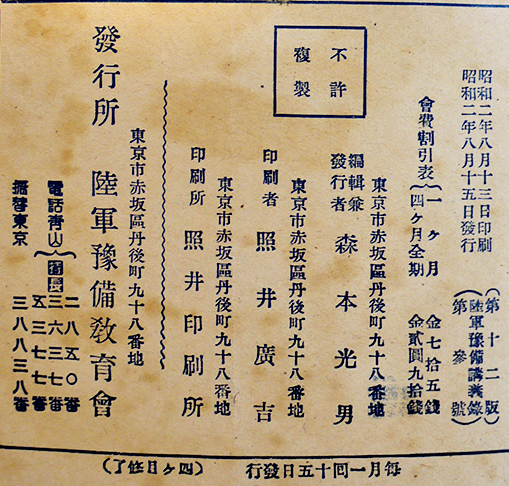 昭和二年八月十三日印刷
昭和二年八月十五日發行
(第十二版)
(陸軍豫備講義錄)
(第參號)
會費割引表
一ヶ月 金七拾五錢
四ヶ月全期 金貳圓九拾錢
不許
複製
東京市赤坂區丹後町九十八番地
編輯兼
發行者 森本光男
東京市赤坂區丹後町九十八番地
印刷者 照井廣吉
東京市赤坂區丹後町九十八番地
印刷所 照井印刷所
東京市赤坂區丹後町九十八番地
發行所 陸軍豫備敎育會
電話靑山
二八五〇番
長 三六三七番
五三七七番
振替東京 三八八三八番
每月一回十五日發行 (四ヶ月修了)